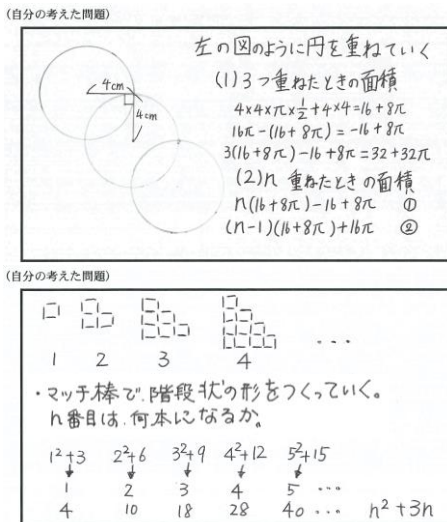 (自分の考えた問題)
左の図のように円を重ねていく
4cm
4cm
(1)3つ重ねたときの面積
4×4×π×1/2+4×4=16+8π
16π-(16+8π)=-16+8π
3(16+8π)-16+8π=32+32π
(2)n 重ねたときの面積
n(16+8π)-16+8π ①
(n-1)(16+8π)+16π ②
(自分の考えた問題)
1 2 3 4 ...
・マッチ棒で階段状の形をつくっていく。
n番目は、何本になるか。
1²+3 2²+6 3²+9 4²+12 5²+15
1 2 3 4 5 ...
4 10 18 28 40 ... n²+3n